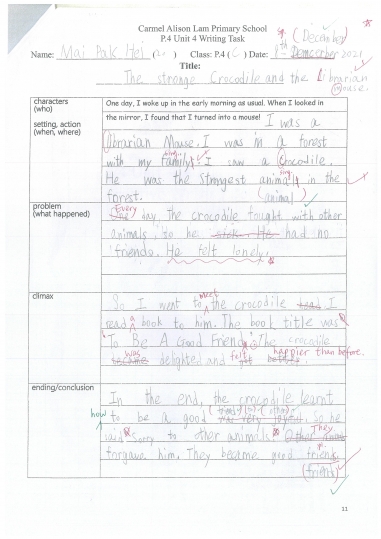 Carmel Alison Lam Primary School
P.4 Unit 4 Writing Task
(December)
Name: Mai Pak Hei (20) Class: P.4 (C) Date: 8th December 2021
Title:
The stronge Crocodile and the Librarian
Mouse.
characters
(who)
setting, action
(when, where)
One day, I woke up in the early morning as usual. When I looked in
the mirror, I found that I turned into a mouse! I was a
Librarian Mouse. I was in a forest
with my family. I saw a Crocodile.
He was the Strongest animal in the
forest. (animal)
problem
(what happened)
Every
One day, the crocodile fought with other
animals, so he had no
friends. He felt lonely.
climax
So I went to meet the crocodile
read a book to him. The book title was
"To Be A Good Friend". The crocodile
was delighted and felt happier than before.
ending/conclusion
In the end, the crocodile learnt
how to be a good
So he
said Sorry to other animals. They
forgave him. They became good friend.
(friends)
11